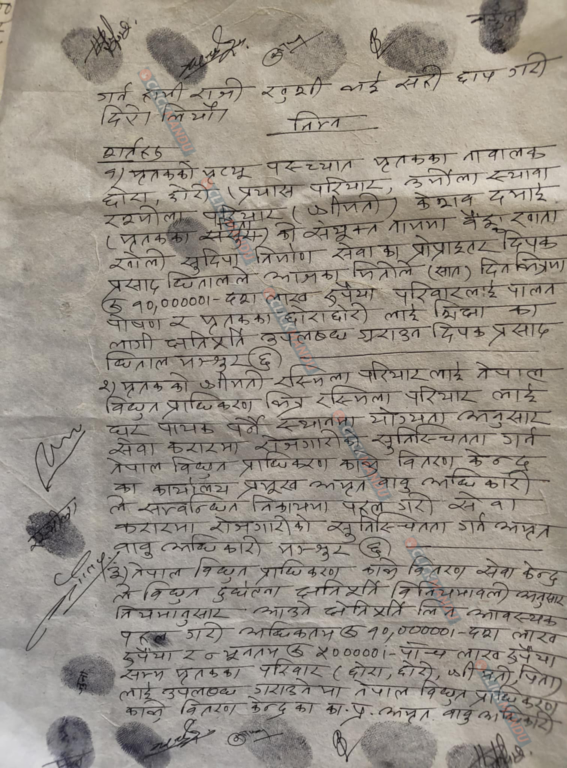 गर्न हामी राजी खुशी साथ सही छाप गरी
दियौं लियौं।
निम्न
शर्तहरु
१) मृतकको मृत्यु पश्चात मृतकका नाबालक
छोरा, छोरी (प्रयास परियार, स्थावा
रश्मीला परियार (श्रीमती) केशव दमाई
(मृतकका ससुरा) को संयुक्त नाममा बैंङ्क खाता
खोली सुदिपा निर्माण सेवाका प्रोप्राइटर दिपक
प्रसाद धितालले आजका मितिले (सात) दिन भित्रमा
रु १०,०००००।- दश लाख रुपैंया परिवारलाई पालन
पोषण र मृतकका (छोरा छोरी) लाई शिक्षा का
लागी क्षतिपूर्ति उपलब्ध गराउन दिपक प्रसाद
धिताल मञ्जुर छ।
२) मृतक को श्रीमती रस्मिला परियार लाई नेपाल
विद्युत प्राधिकरण भित्र रस्मिला परियार लाई
घर पायक पर्ने स्थानमा योग्यता अनुसार
सेवा करारमा रोजगारी सुनिस्चितता गर्न
नेपाल विद्युत प्राधिकरण काभ्रे वितरण केन्द्र
का कार्यालय प्रमूख अमृत बाबु अधिकारी
ले सम्बन्धित निकायमा पहल गरी सेवा
करारमा रोजगारीको सुनिस्चितता गर्न अमृत
बाबु अधिकारी मञ्जुर छ।
३) नेपाल विद्युत प्राधिकरण काभ्रे वितरण सेवा केन्द्र
ले विद्युत दुर्घटना क्षतिपूर्ति विनियमावली अनुसार
नियमानुसार आउने क्षतिपूर्ति लिन आवस्यक
गरी अधिकतम रु १०,०००००।- दश लाख
रुपैंया र न्यूनतम रु ५०००००।- पाच लाख रुपैंया
सम्म मृतकका परिवार (छोरा, छोरी, श्रीमती, पिता)
लाई उपलब्ध गराउनेमा नेपाल विद्युत प्राधिकरण
काभ्रे वितरण केन्द्र का का.प्र. अमृत बाबु अधिकारी
CLICKMANDU